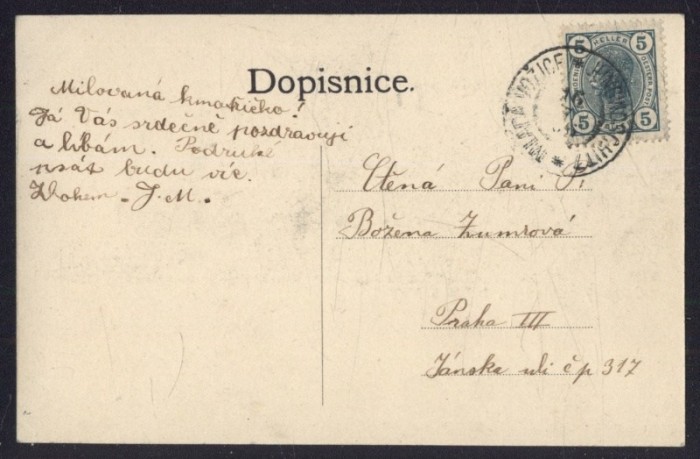 Dopisnice.
Milovaná kmotřičko!
Já Vás srdečně pozdravuji
a líbám. Podruhé
psát budu víc.
Zbohem. J. M.
5 HELLER 5
5 5
MLADÁ VOŽICE
Ctěná Paní P.
Božena Zumrová
Praha III
Jánska uli č p 317